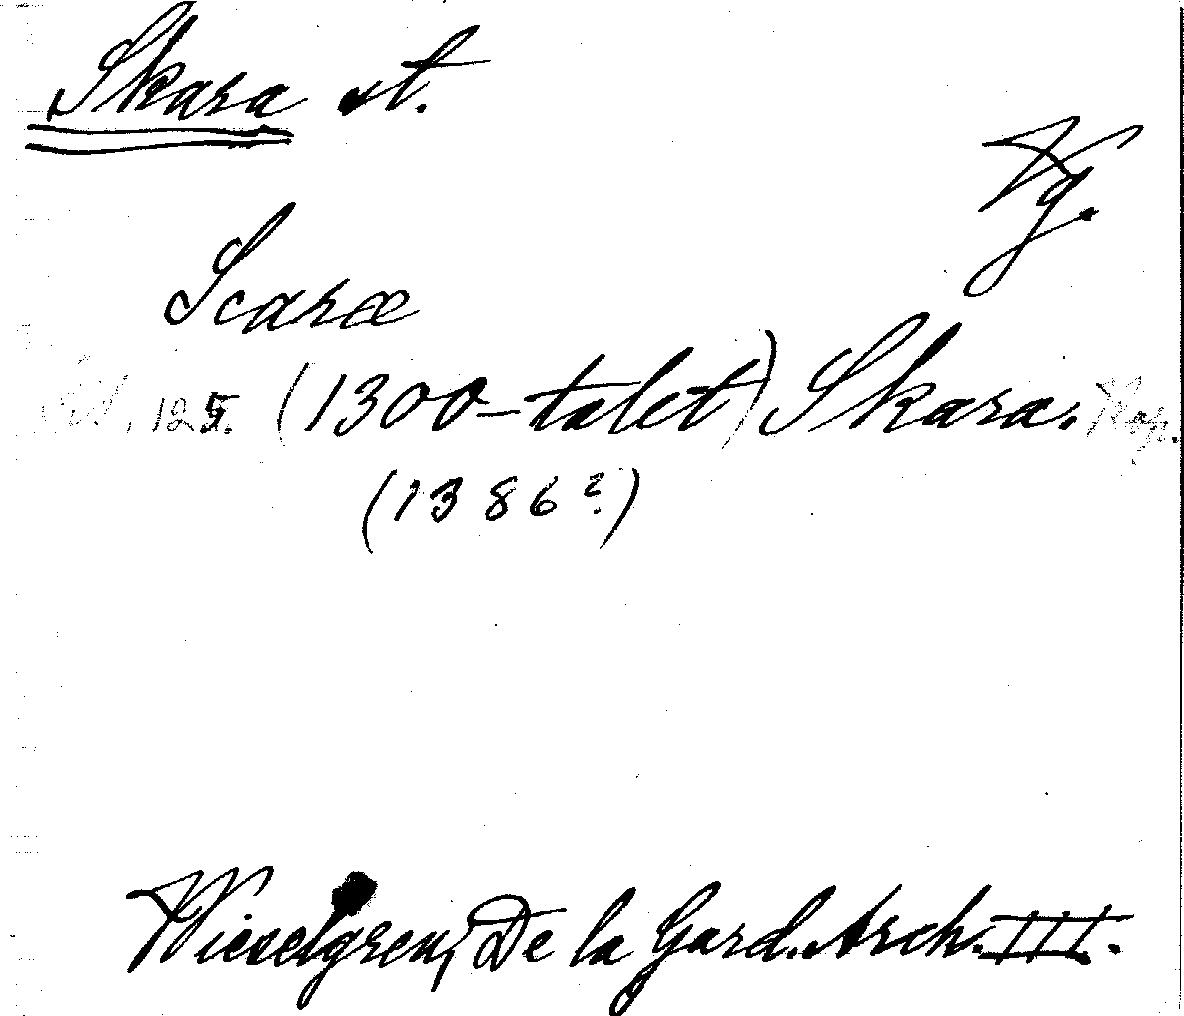 Skara st.
Vg.
Scaræ
Sid. 125. (1300-talet) Skara. Kop.
(1386?)
Wieselgren, De la Gard. Arch. III.